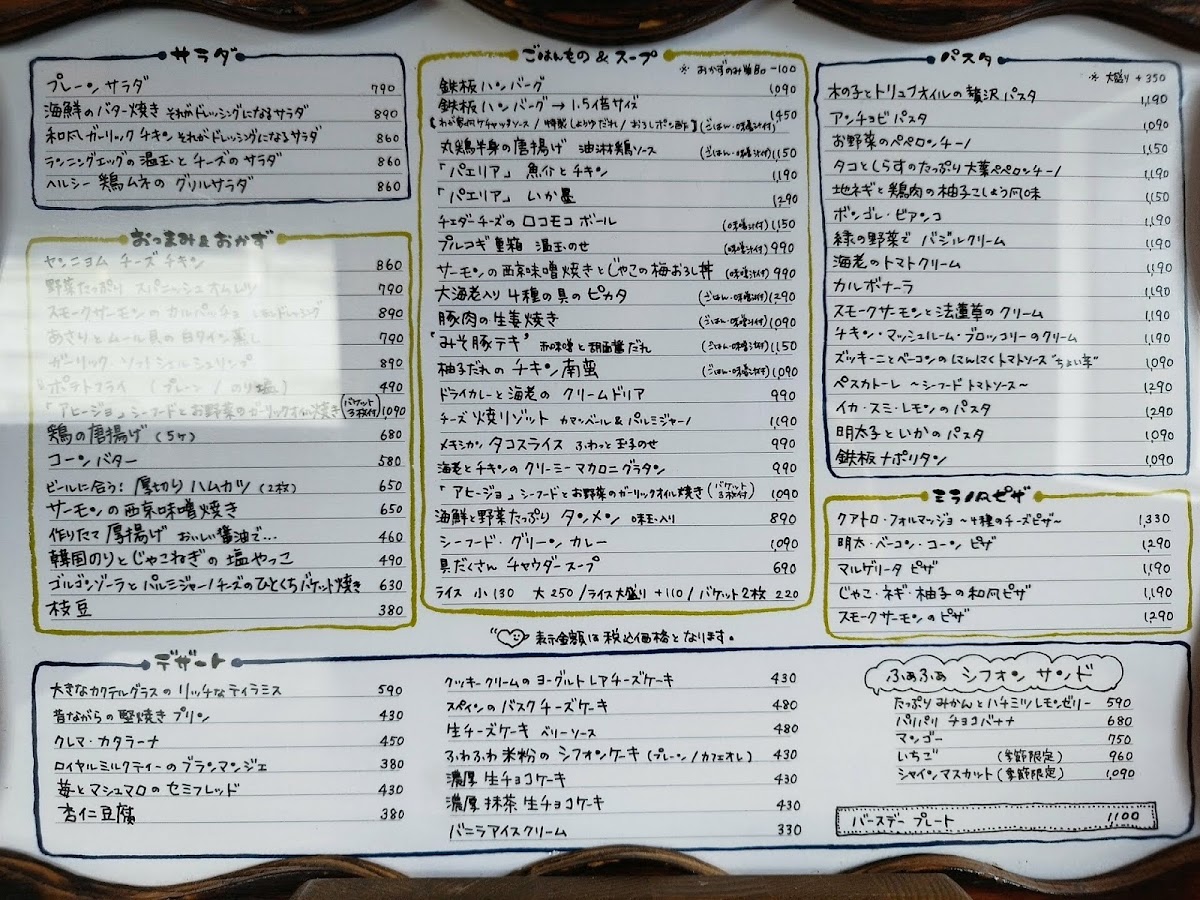 サラダ
プレーン サラダ 790
海鮮のバター焼き それがドレッシングになるサラダ 890
和風ガーリック チキン それがドレッシングになるサラダ 860
ランニングエッグの温玉と チーズの サラダ 860
ヘルシー 鶏ムネの グリルサラダ 860
おつまみ&おかず
ヤンニョム チーズ チキン 860
野菜たっぷり スパニッシュ オムレツ 790
スモークサーモンの カルパッチョ レモンドレッシング 890
あさりと ムール貝の 白ワイン蒸し 790
ガーリック ソフトシェルシュリンプ 890
ポテトフライ (プレーン / のり塩) 490
「アヒージョ」シーフードとお野菜のガーリックオイル焼き(バケット3枚付) 1,090
鶏の唐揚げ (5ヶ) 680
コーンバター 580
ビールに合う! 厚切りハムカツ (2枚) 650
サーモンの西京味噌焼き 650
作りたて 厚揚げ おいしい醤油で... 460
韓国のりとじゃこねぎの 塩やっこ 490
ゴルゴンゾーラと パルミジャーノチーズのひとくちバケット焼き 630
枝豆 380
ごはんもの & スープ
※ おかずのみ単品 -100
鉄板ハンバーグ 1,090
鉄板ハンバーグ → 1.5倍サイズ 1,450
【わが家風ケチャップソース / 特製しょうゆだれ / おろしポン酢】(ごはん・味噌汁付)
丸鶏半身の唐揚げ 油淋鶏ソース (ごはん・味噌汁付) 1,150
「パエリア」 魚介とチキン 1,190
「パエリア」 いか墨 1,290
チェダーチーズの ロコモコ ボール (味噌汁付) 1,150
プルコギ重箱 温玉のせ (味噌汁付) 990
サーモンの西京味噌焼きとじゃこの梅おろし丼 (味噌汁付) 990
大海老入り 4種の具の ピカタ (ごはん・味噌汁付) 1,290
豚肉の生姜焼き (ごはん・味噌汁付) 1,090
"みそ豚テキ" 赤味噌と胡麻醤だれ (ごはん・味噌汁付) 1,150
柚子だれの チキン南蛮 (ごはん・味噌汁付) 1,090
ドライカレーと海老の クリームドリア 990
チーズ 焼リゾット カマンベール & パルミジャーノ 1,190
メキシカン タコスライス ふわっと玉子のせ 990
海老とチキンの クリーミーマカロニグラタン 990
「アヒージョ」シーフードとお野菜のガーリックオイル焼き(バケット3枚付) 1,090
海鮮と野菜たっぷり タンメン 味玉入り 890
シーフード・グリーン カレー 1,090
具だくさん チャウダースープ 690
ライス 小130 大250 / ライス大盛り +110 / バケット2枚 220
表示金額は税込価格となります。
パスタ
※ 大盛り +350
木の子とトリュフオイルの贅沢パスタ 1,190
アンチョビ パスタ 1,090
お野菜のペペロンチーノ 1,150
タコとしらすのたっぷり大葉ペペロンチーノ 1,190
地ネギと鶏肉の柚子こしょう風味 1,150
ボンゴレ・ビアンコ 1,190
緑の野菜で バジルクリーム 1,190
海老のトマトクリーム 1,190
カルボナーラ 1,190
スモークサーモンと法蓮草の クリーム 1,190
チキン・マッシュルーム・ブロッコリーのクリーム 1,190
ズッキーニとベーコンの にんにくトマトソース "ちょい辛" 1,090
ペスカトーレ ~シーフードトマトソース~ 1,290
イカ・スミ・レモンのパスタ 1,290
明太子といかのパスタ 1,090
鉄板ナポリタン 1,090
ミラノ風ピザ
クアトロ・フォルマッジョ ~4種のチーズピザ~ 1,330
明太・ベーコン・コーン ピザ 1,290
マルゲリータ ピザ 1,190
じゃこ・ネギ・柚子の和風ピザ 1,190
スモークサーモンの ピザ 1,290
デザート
大きなカクテルグラスの リッチなティラミス 590
昔ながらの堅焼きプリン 430
クレマ・カタラーナ 450
ロイヤルミルクティーのブランマンジェ 380
苺とマシュマロの セミフレッド 430
杏仁豆腐 380
クッキークリームの ヨーグルトレアチーズケーキ 430
スペインの バスクチーズケーキ 480
生チーズケーキ ベリーソース 480
ふわふわ米粉の シフォンケーキ (プレーン/カフェオレ) 430
濃厚 生チョコケーキ 430
濃厚 抹茶生チョコケーキ 430
バニラアイスクリーム 330
ふぁふぁ シフォン サンド
たっぷりみかんとハチミツレモンゼリー 590
パリパリ チョコバナナ 680
マンゴー 750
いちご (季節限定) 960
シャインマスカット (季節限定) 1,090
バースデー プレート 1,100